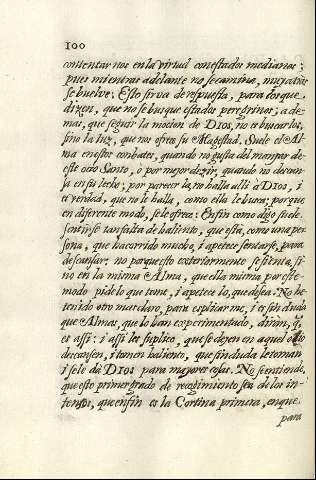 100
contentarnos en la virtud con estados medianos;
pues mientras adelante no se camina, muy atràs
se buelve. Esto sirva de respuesta, para los que
dizen, que no se busque estados peregrinos; ade-
mas, que seguir la mocion de DIOS, no es buscarlos,
sino la luz, que nos ofrece su Magestad. Suele el Al-
ma en estos conbates, quando no gusta del manjar de
este ocio Santo, ò por mejor dezir, quando no decan-
sa en su lecho; por parecerla, no halla alli à DIOS, i
es verdad, que no le halla, como ella le busca; porque
en diferente modo, se le ofrece: Enfin como dijo suele
sentirse tan falta de haliento, que està, como una per-
sona, que ha corrido mucho, i apetece sentarse, para
descansar: no porque esto exteriormente se sienta, si
no en la misma Alma, que ella misma por este
modo pide lo que teme, i apetece lo, que desea. No he
tenido otro mas claro, para esplicarme, i es sin duda
que Almas, que lo han experimentado, diran, q̃
es assi: i assi les suplico, que se dejen en aquel ocio
decansen, i tomen haliento, que sin duda le toman
i se le dà DIOS para mayores cosas. No se entiende,
que este primer grado de recogimiento sea de los in-
tensos, que enfin es la Cortina primera, en que
para